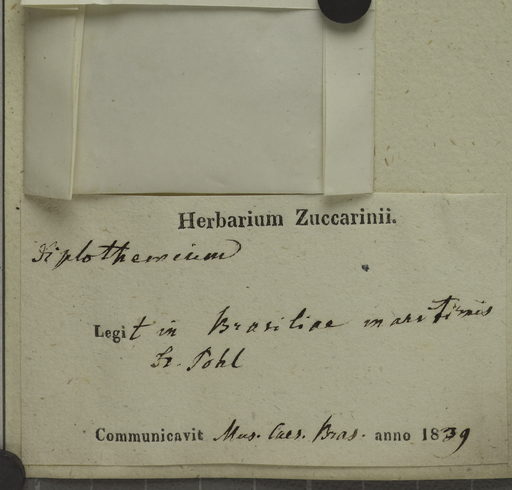 Herbarium Zuccarinii.
Diplothemium
Legit in Brasiliae maritimis
Dr. Pohl
Communicavit Mus. Caes. Bras. anno 1839